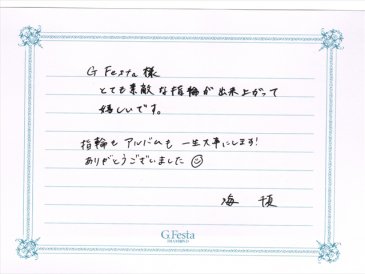 G Festa 様
とても素敵な指輪が出来上がって
嬉しいです。
指輪も アルバムも 一生大事にします!
ありがとうございました
海 頃
G.Festa